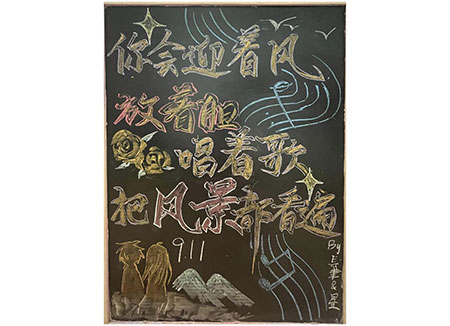 你会迎着风
放着胆
唱着歌
把风景都看遍
9.11
By